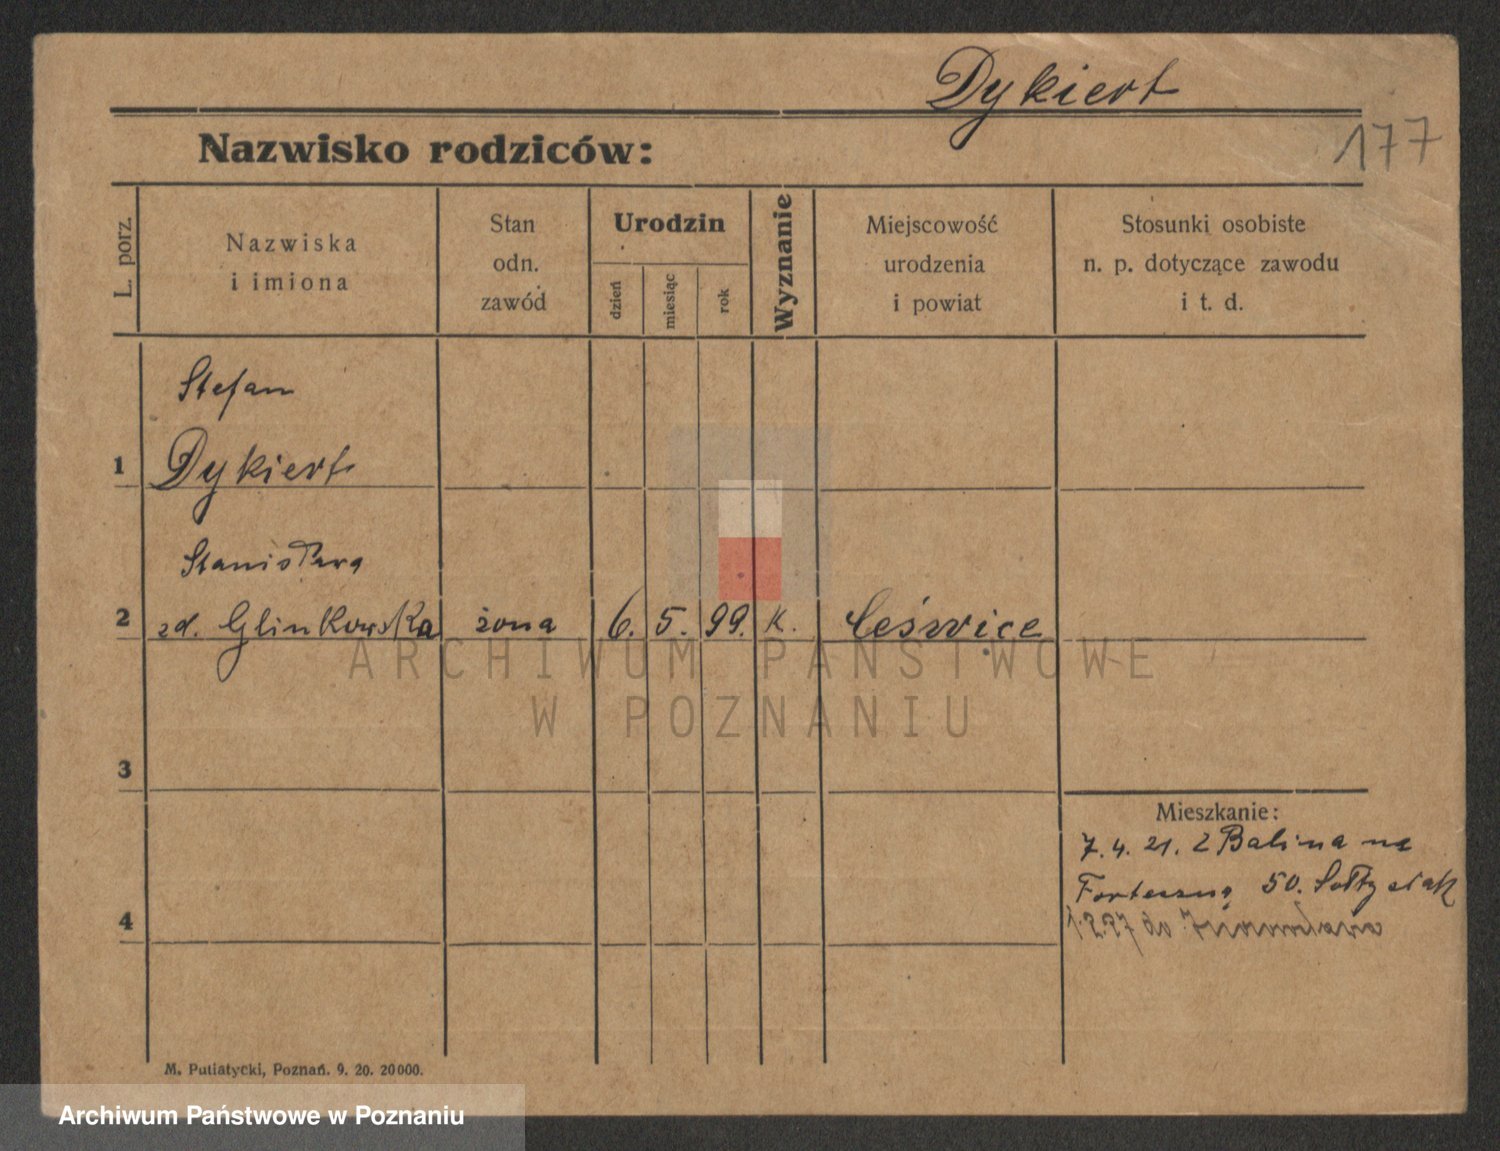 Dykiert
177
Nazwisko rodziców:
L. porz.
Nazwiska
i imiona
Stan
odn.
zawód
Urodzin
dzień
miesiąc
rok
Wyznanie
Miejscowość
urodzenia
i powiat
Stosunki osobiste
n. p. dotyczące zawodu
i t. d.
Stefan
1 Dykiert
Stanisława
2 zd. Glinkowska żona 6. 5. 99. K. Ceświce
3
Mieszkanie:
7. 4. 21. z Balina na
Forteczną 50. Sołtysiak
4
do
M. Putiatycki, Poznań. 9. 20. 20000.
ARCHIWUM PAŃSTWOWE
W POZNANIU
Archiwum Państwowe w Poznaniu